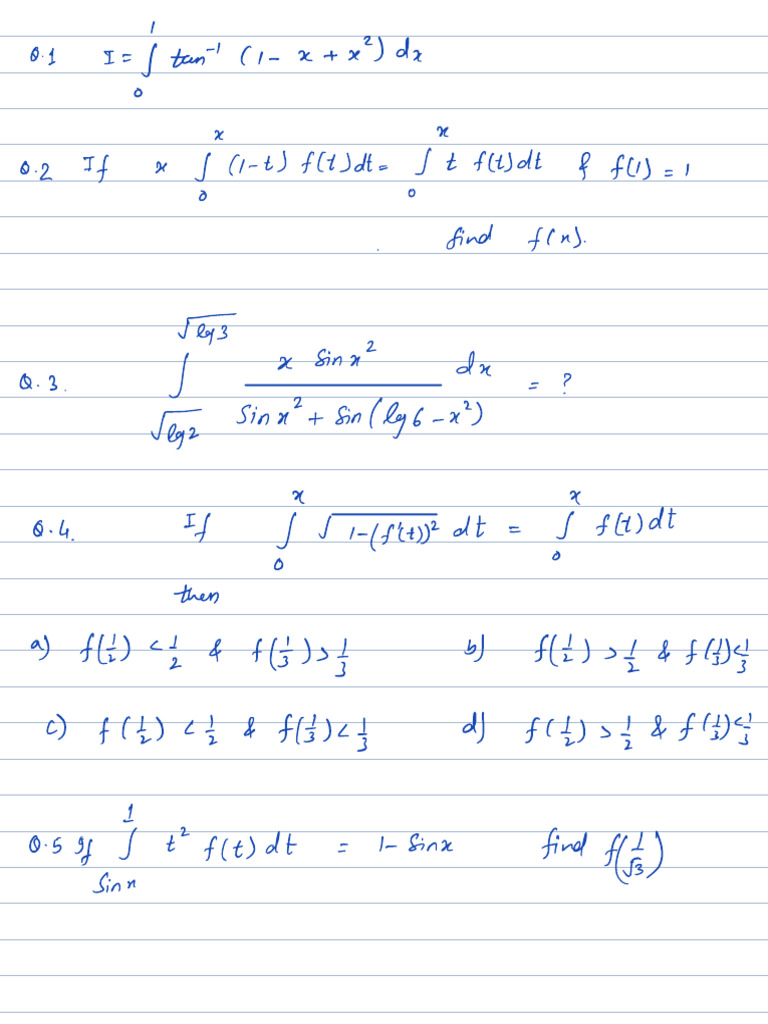 Q.1 I = ∫₀¹ tan⁻¹ (1 - x + x²) dx
Q.2 If x ∫₀ˣ (1-t) f(t) dt = ∫₀ˣ t f(t) dt & f(1) = 1
find f(x).
Q.3. ∫_{√lg2}^{√lg3} (x Sin x²) / (Sin x² + Sin (lg 6 - x²)) dx = ?
Q.4. If ∫₀ˣ √(1-(f'(t))²) dt = ∫₀ˣ f(t) dt
then
a) f(1/2) < 1/2 & f(1/3) > 1/3 b) f(1/2) > 1/2 & f(1/3) < 1/3
c) f(1/2) < 1/2 & f(1/3) < 1/3 d) f(1/2) > 1/2 & f(1/3) < 1/3
Q.5 If ∫_{Sin x}^{1} t² f(t) dt = 1 - Sinx find f(1/√3)